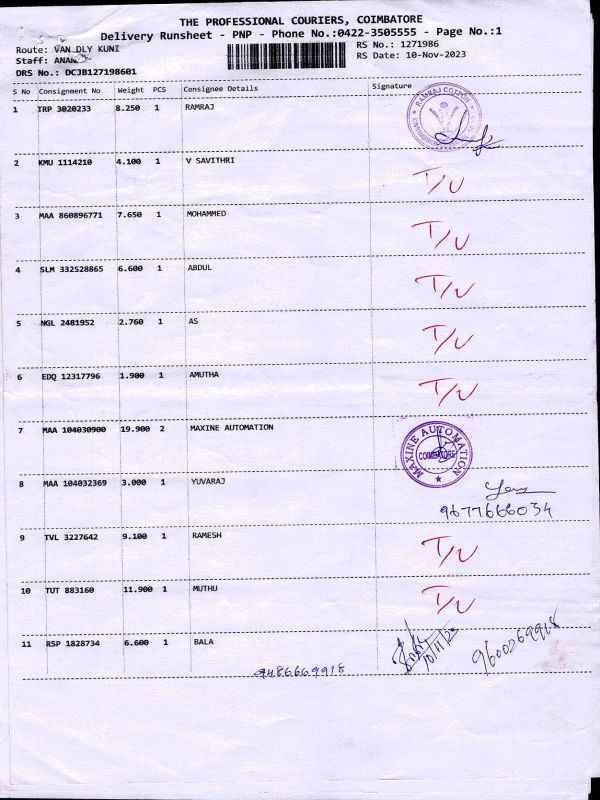 THE PROFESSIONAL COURIERS, COIMBATORE
Delivery Runsheet - PNP - Phone No.:0422-3505555 - Page No.:1
Route: VAN DLY KUNI RS No.: 1271986
Staff: RS Date: 10-Nov-2023
DRS No.: DCJB127198601
S No Consignment No Weight PCS Consignee Details Signature
1 TRP 3020233 8.250 1 RAMRAJ
RAMRAJ COTTON
2 KMU 1114210 4.100 1 V SAVITHRI T/U
3 MAA 860896771 7.650 1 MOHAMMED T/U
4 SLM 332528865 6.600 1 ABDUL T/U
5 NGL 2481952 2.760 1 AS T/U
6 EDQ 12317796 1.900 1 AMUTHA T/U
7 MAA 104030900 19.900 2 MAXINE AUTOMATION
MAXINE AUTOMATION
COIMBATORE
8 MAA 104032369 3.000 1 YUVARAJ
9677666034
9 TVL 3227642 9.100 1 RAMESH T/U
10 TUT 883160 11.900 1 MUTHU T/U
11 RSP 1828734 6.600 1 BALA
10/11/23
9600269918
9486669918